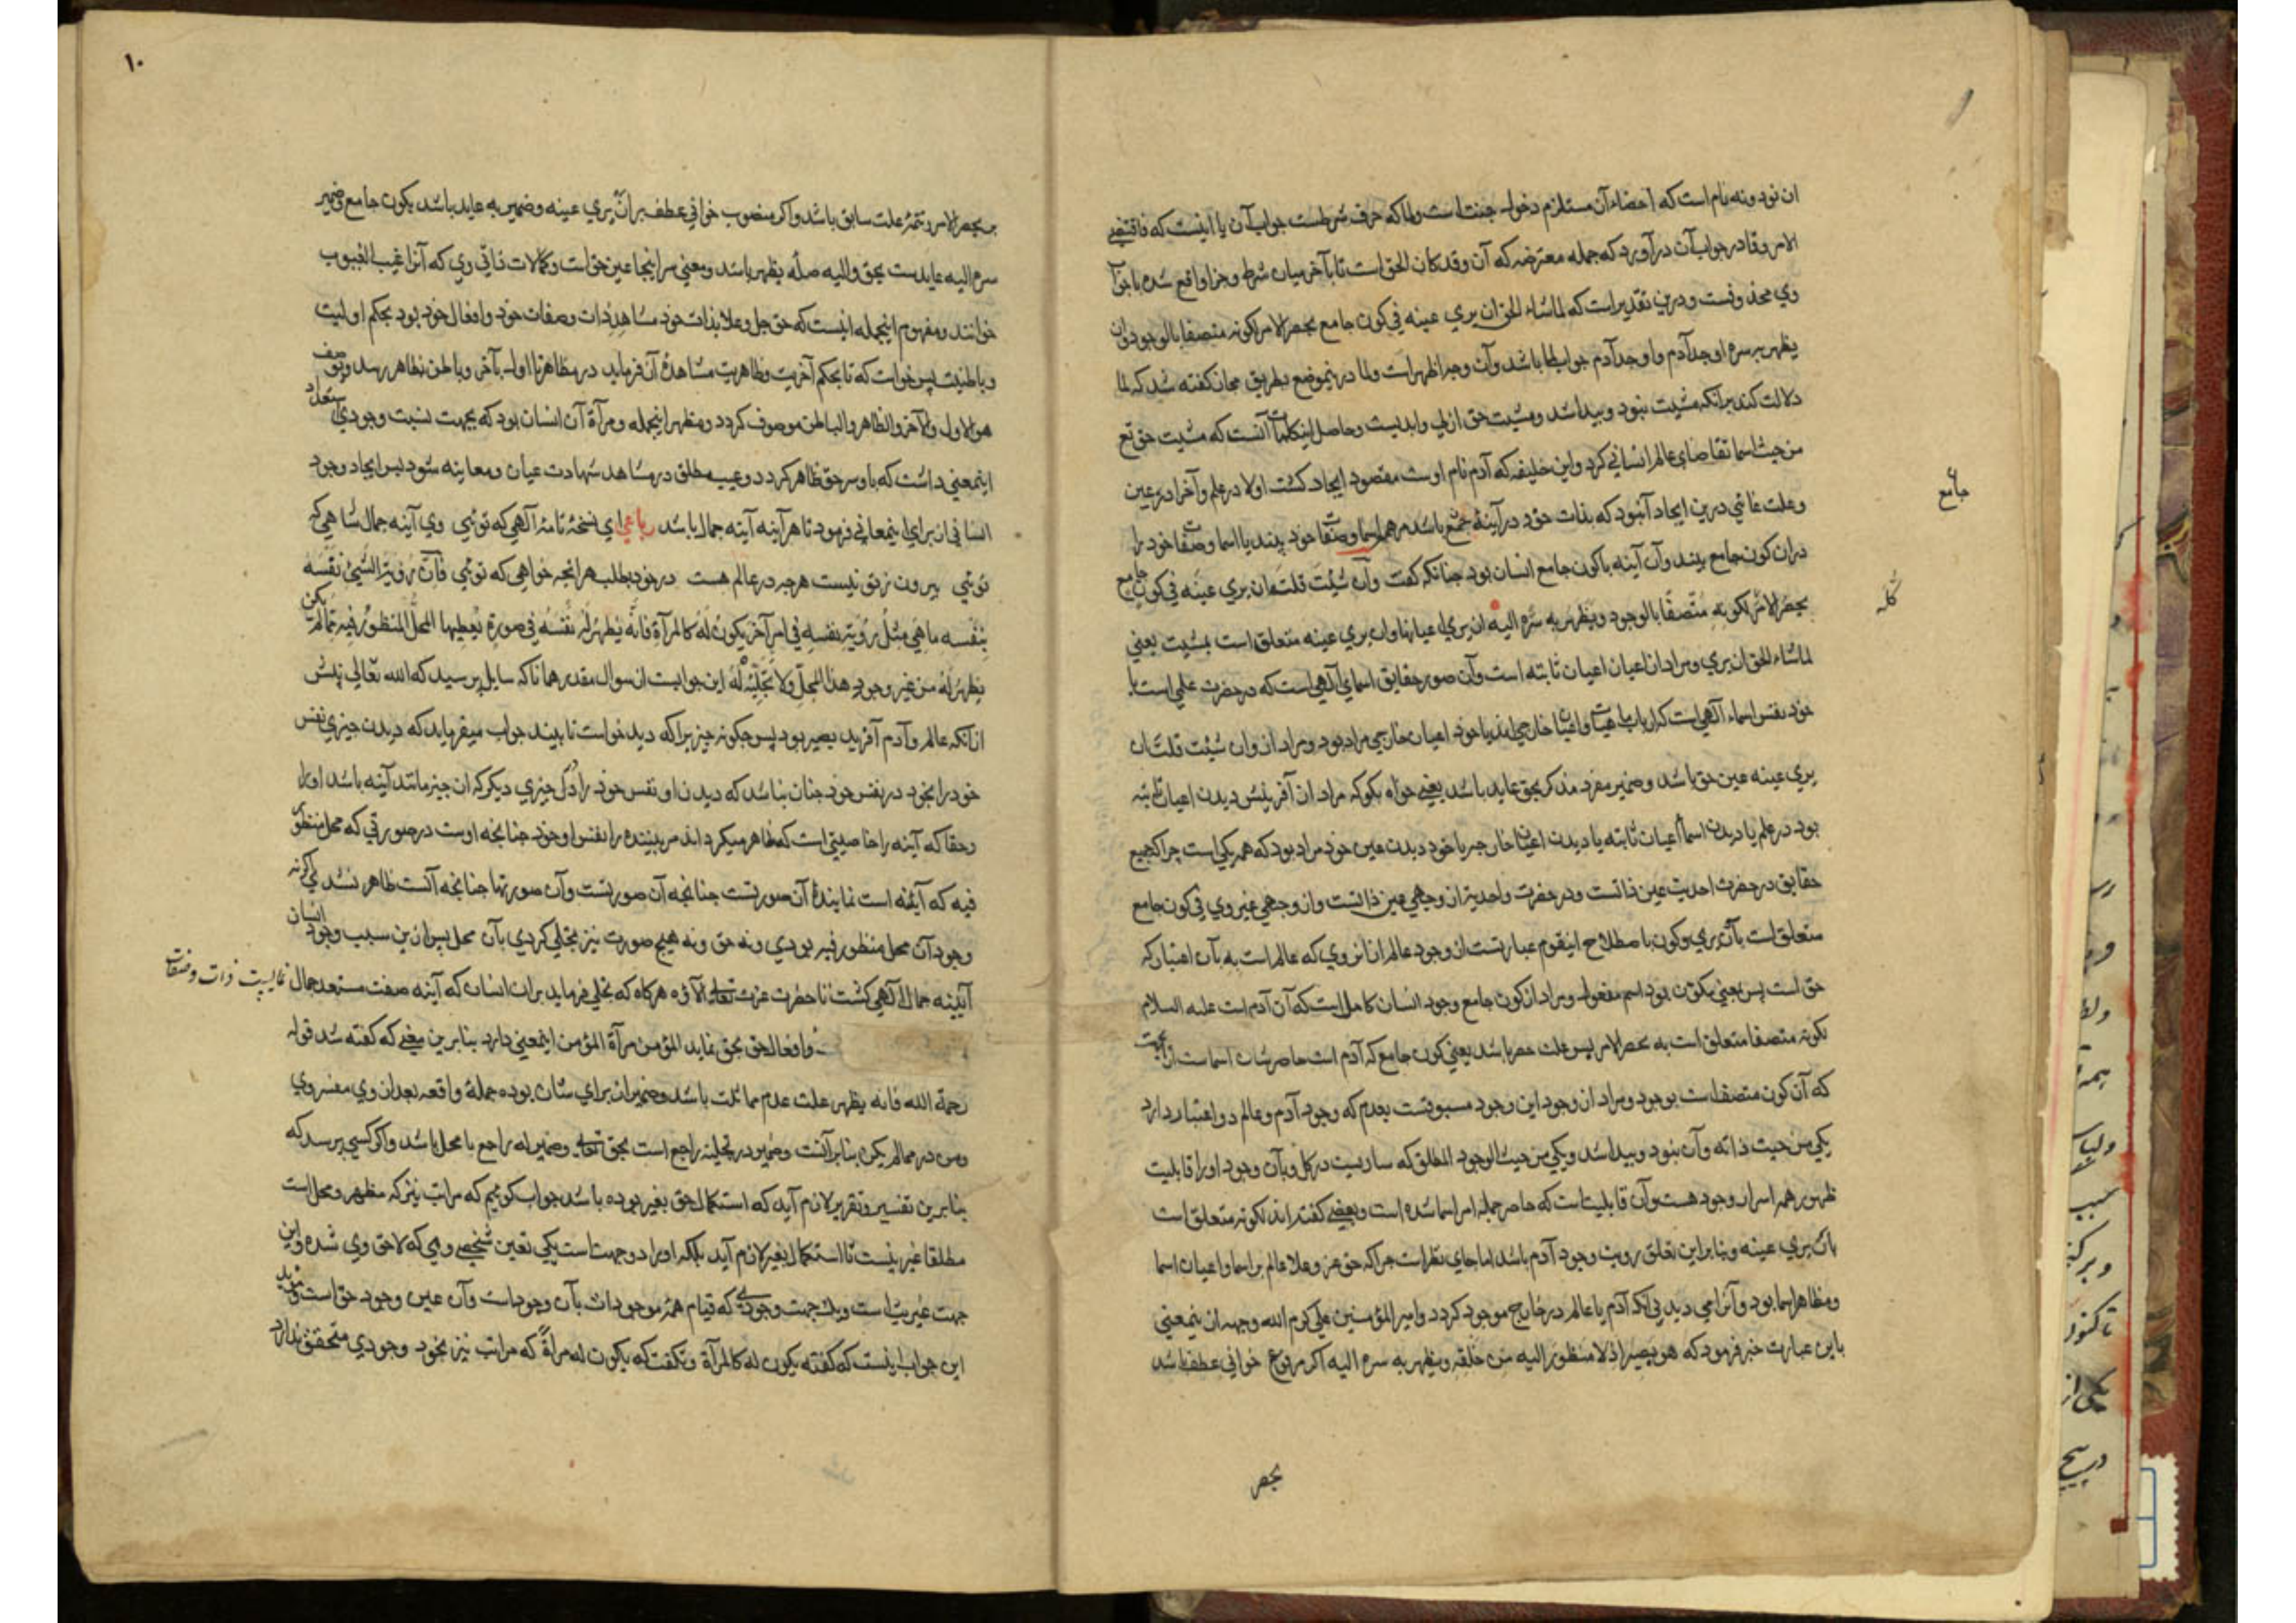 ان نود و نه نام است که احصاء آن مستلزم دخول جنت است و لما که حرف شرطست جواب آن یا اینست که فاقتضی
الامر وفا در جواب آن درآورد که جمله معترضه که آن وقد کان الحق است تا بآخر میان شرط و جزا واقع شده یا جزآ
وی محذوفست و درین تقدیر است که لماشاء الحق ان یری عینه فی کون جامع یحصر الامر لکونه متصفا بالوجود و ان
یظهر به سره اوجد آدم و اوجد آدم جواب لما باشد و آن وجه اظهر است و لما درینموضع بطریق مجاز گفته شد که لما
دلالت کند برانکه مشیت نبود و پیدا شد و مشیت حق ازلی و ابدیست و حاصل اینکلمات آنست که مشیت حق تع
من حیث اسما تقاضای عالم انسانی کرد و این خلیفه که آدم نام اوست مقصود ایجاد گشت اولا در علم و آخرا در عین
و علت غائی درین ایجاد آنبود که بذات خود در آینهٔ جمع باشد مر همه اسما و صفات خود بیند یا اسما و صفات خود را
دران کون جامع بیند و آن آینه با کون جامع انسان بود چنانکه گفت وان شئت قلت ان یری عینه فی کون جامع
یحصر الامر لکونه متصفا بالوجود و یظهر به سره الیه ان یری اعیانها وان یری عینه متعلق است بمشیت یعنی
لماشاء الحق ان یری و مراد از اعیان اعیان ثابته است و آن صور حقایق اسمای آلهی است که در حضرت علمی است یا
خود نفس اسماء آلهی است که ارباب ماهیات و اعیان خارجی اند یا خود اعیان خارجی مراد بود و مراد از وان شئت قلت ان
یری عینه عین حق باشد و ضمیر مفرد مذکر بحق عاید باشد یعنی خواه بکو که مراد از آفرینش دیدن اعیان ثابته
بود در علم یا دیدن اسما اعیان ثابته یا دیدن اعیان خارجی یا خود دیدن عین خود مراد بود که همه یکی است چرا که جمیع
حقایق در حضرت احدیت عین ذاتست و در حضرت واحدیة از وجهی عین ذاتست و از وجهی غیر وی فی کون جامع
متعلق است بآن یری و کون باصطلاح اینقوم عبارتست از وجود عالم از انروی که عالم است به بآن اعتبار که
حق است پس بمعنی مکون بود اسم مفعول و مراد از کون جامع وجود انسان کامل است که آن آدم است علیه السلام
لکونه متصفا متعلق است به یحصر الامر پس علت حصر باشد یعنی کون جامع که آدم است حاصر شان اسماست ازان جهت
که آن کون متصف است بوجود و مراد از وجود این وجود مسبوقست بعدم که وجود آدم و عالم دو اعتبار دارد
یکی من حیث ذاته و آن نبود و پیدا شد و یکی من حیث الوجود المطلق که ساریست در کل و بآن وجود او را قابلیت
ظهور همه اسرار وجود هست و آن قابلیت است که حاصر جمله امر اسما شده است و بعضی گفته اند لکونه متعلق است
بان یری عینه و بنا براین تعلق رویت وجود آدم باشد اما جای نظر است چرا که حق عز و علا عالم بر اسما و اعیان اسما
و مظاهر اسما بود و آنرا می دید بی آنکه آدم یا عالم در خارج موجود کردد و امیر المؤمنین علی کرم الله وجهه ازینمعنی
باین عبارت خبر فرمود که هو بصیر اذ لا منظور الیه من خلقه و یظهر به سره الیه اکر مرفوع خوانی عطف باشد
جامع
کله
یحصر
۱۰
بیحصر الامر و تتمهٔ علت سابق باشد و اکر منصوب خوانی عطف بر ان یری عینه و ضمیر به عاید باشد بکون جامع و ضمیر
سره الیه عایدست بحق و الیه صلهٔ یظهر باشد و معنی سر اینجا عین حق است و کمالات ذاتی وی که آنرا غیب الغیوب
خوانند و مفهوم اینجمله اینست که حق جل و علا بذات خود مشاهد ذات و صفات خود و افعال خود بود بحکم اولیت
و باطنیت پس خواست که تا بحکم آخریت و ظاهریت مشاهدهٔ آن فرماید در مظاهر تا اول بآخر و باطن بظاهر رسد و بوصف
هو الاول والآخر والظاهر والباطن موصوف کردد و مظهر اینجمله و مرآة آن انسان بود که بجهت نسبت وجودی استعداد
اینمعنی داشت که باو سر حق ظاهر کردد و غیب مطلق در مشاهد شهادت عیان و معاینه شود پس ایجاد وجود
انسانی از برای اینمعانی فرمود تا هر آینه آینه جمال باشد رباعی ای نسخهٔ نامهٔ آلهی که توئی وی آینه جمال شاهی که
توئی بیرون ز تو نیست هرچه در عالم هست در خود بطلب هر انچه خواهی که توئی فان رؤیة الشیئ نفسه
بنفسه ما هی مثل رؤیته نفسه فی امر آخر یکون له کالمرآة فانه یظهر له نفسه فی صورة یعطیها المحل المنظور فیه مما لم یکن
یظهر له من غیر وجود هذا المحل ولا تجلیه له این جوابیست از سوال مقدر همانا که سایل پرسید که الله تعالی پیش
ازانکه عالم و آدم آفریند بصیر بود پس چکونه چیز براکه دید خواست تا بیند جواب میفرماید که دیدن چیزی نفس
خود را بخود در نفس خود چنان نباشد که دیدن او نفس خود را در چیزی دیکر که ان چیز مانند آینه باشد او را
و حقا که آینه را خاصیتی است که ظاهر میکرداند مر بیننده را نفس او خود چنانچه اوست در صورتی که محل منظور
فیه که آینه است نمایندهٔ آن صورتست چنانچه آن صورتست وآن صورتها چنانچه آنست ظاهر نشدی اکر نه
وجود آن محل منظور فیه بودی و نه حق و نه هیچ صورت نیز تجلی کردی بآن محل پس ازین سبب وجود انسان
آیینه جمال آلهی کشت تا حضرت عزت تعالی آلاؤه هرکاه که تجلی فرماید بران انسان که آینه صفت مستعد جمال نمائیست ذات و صفات
و افعال حق بحق نماید المؤمن مرآة المؤمن اینمعنی دارد بنا برین معنی که کفته شد قوله
رحمة الله فانه یظهر علت عدم مماثلت باشد و ضمیر ان برای شان بوده جملهٔ واقعه بعد ازوی مفسر وی
ومن در مما لم یکن بنا برآنست و ضمیر در تجلیه راجع است بحق تعالی و ضمیر له راجع با محل باشد و اکر کسی پرسد که
بنا برین تفسیر و تقریر لازم آید که استکمال حق بغیر بوده باشد جواب کوییم که مرات نیز که مظهر و محل است
مطلقا غیر نیست تا استکمال بغیر لازم آید بلکه او را دو جهت است یکی تعین شخصی وی که لاحق وی شده و این
جهت غیریت است و یک جهت وجودی که قیام همهٔ موجودات بآن وجودست وآن عین وجود حق است و مؤید
این جواب اینست که کفته یکون له کالمرآة و نکفت که یکون له مرآة که مرات نیز بخود وجودی متحقق ندارد